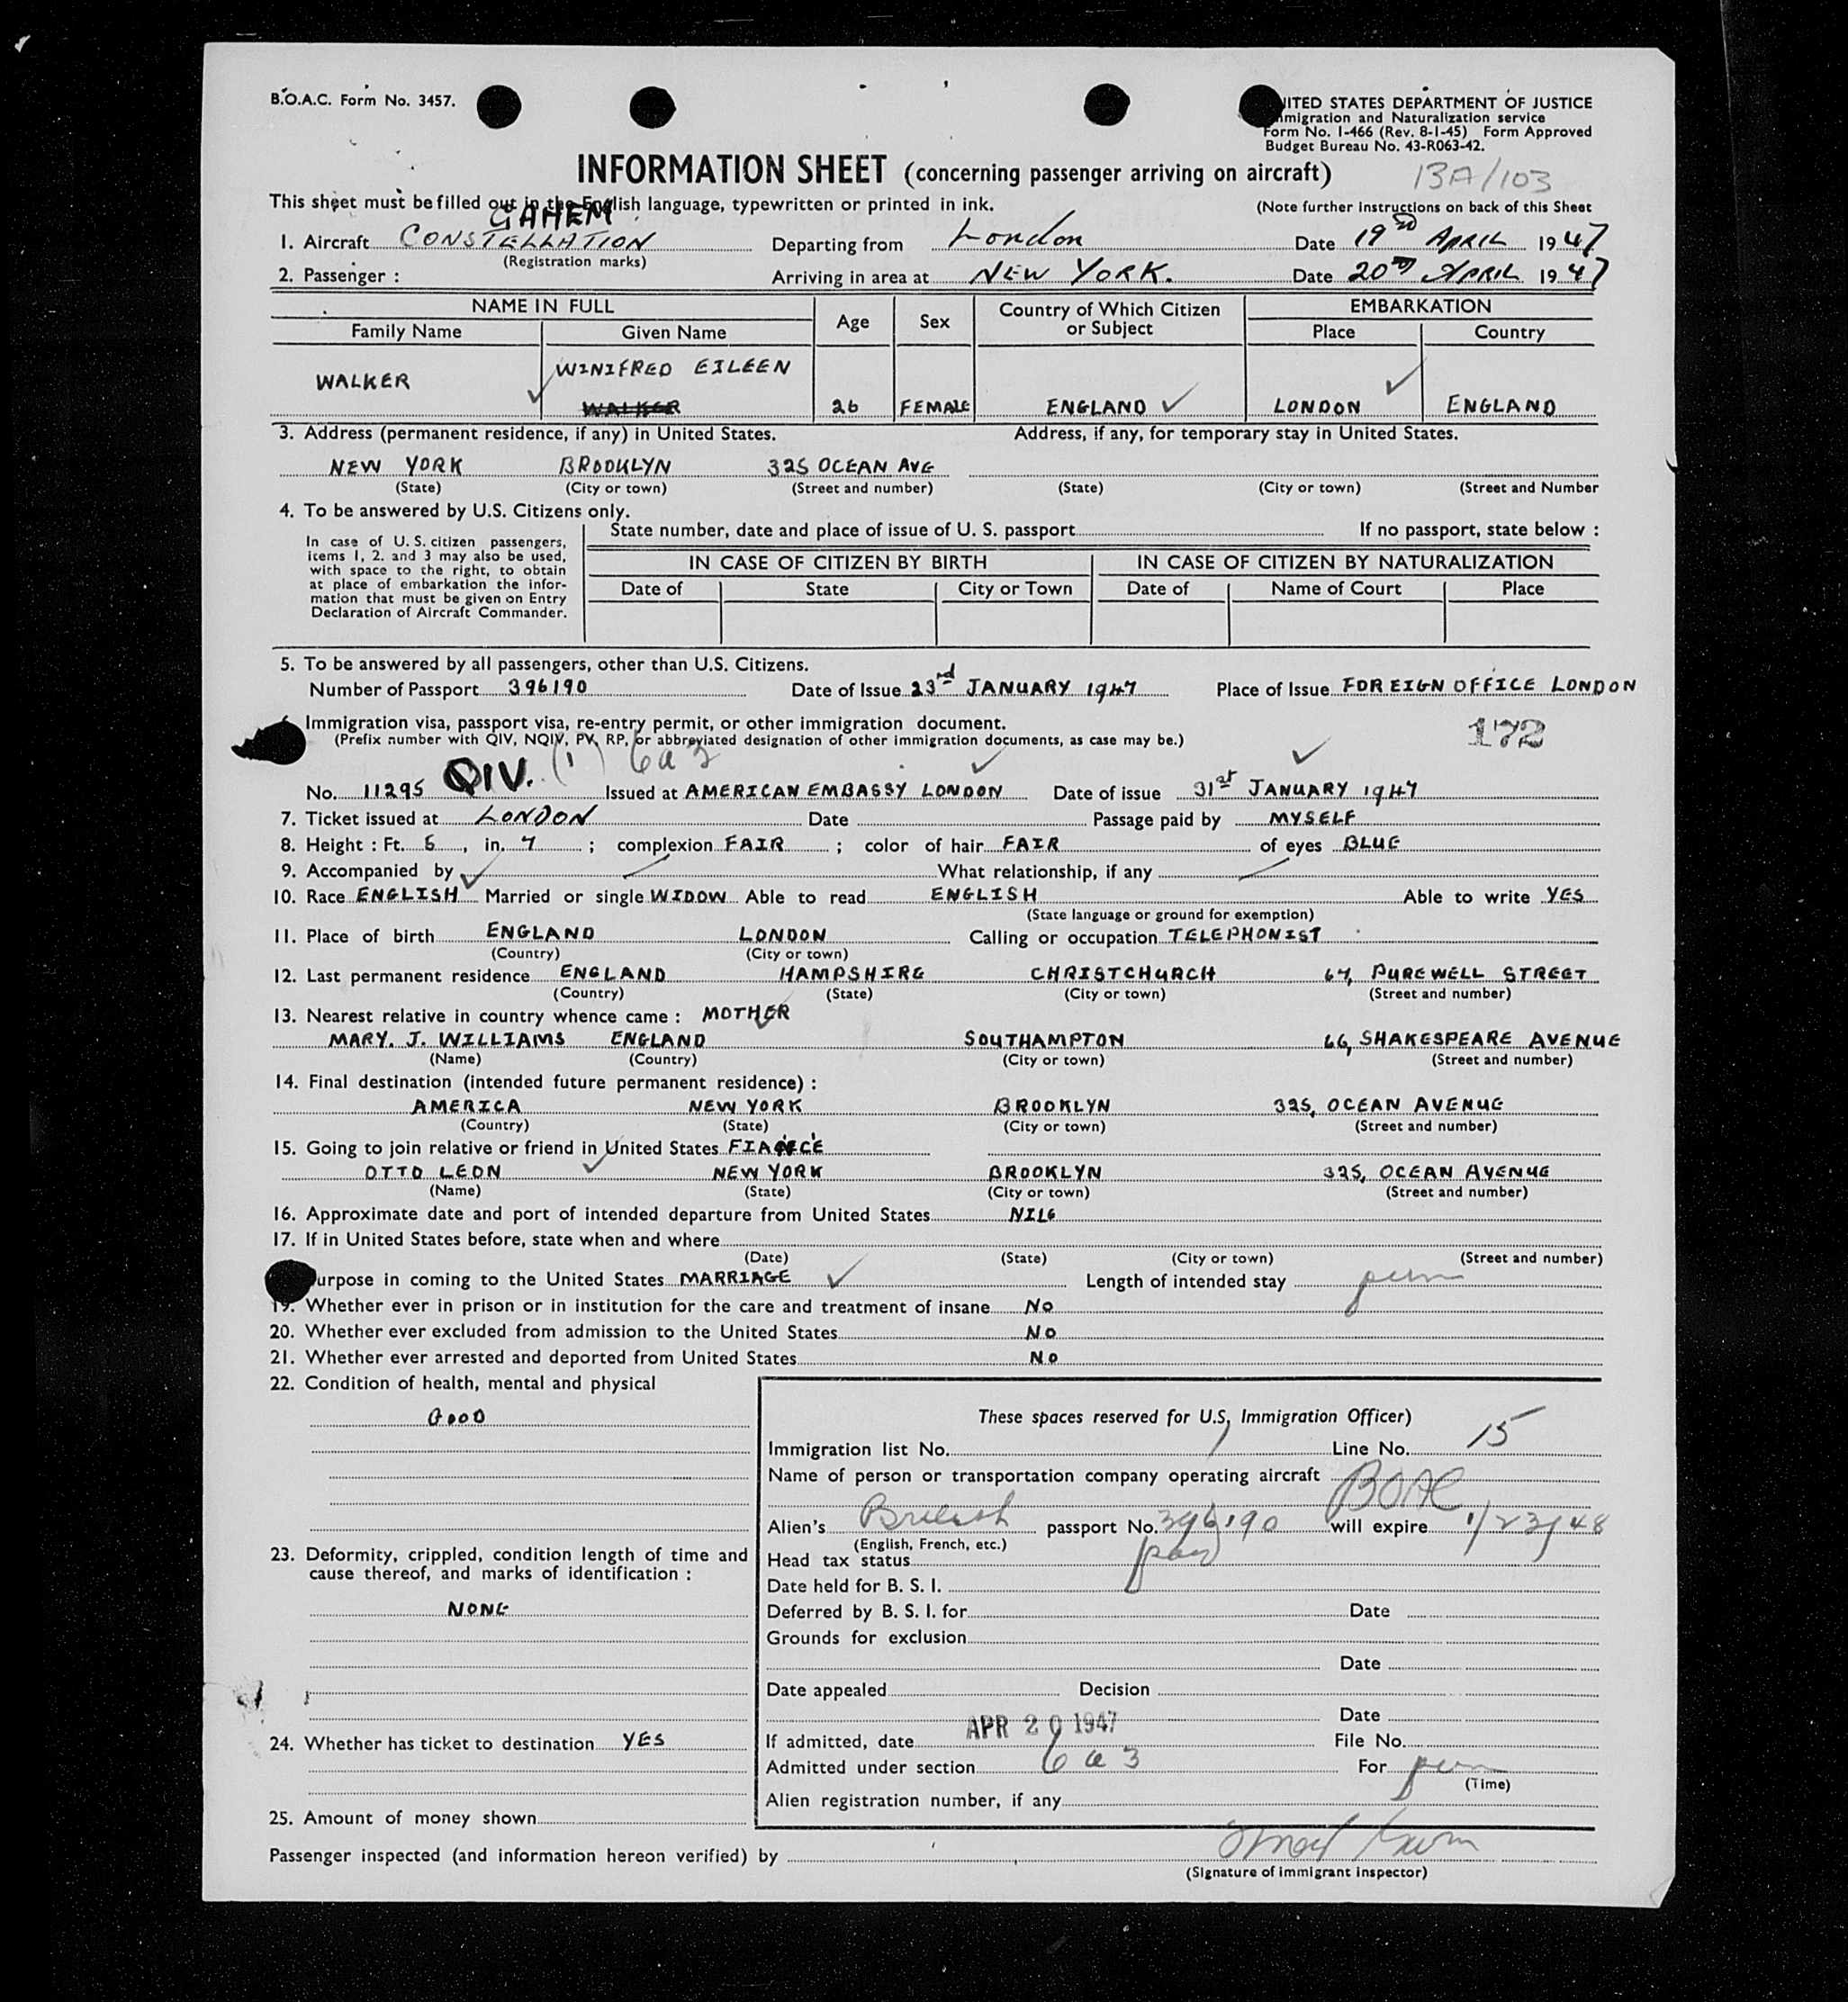 B.O.A.C. Form No. 3457.
ITED STATES DEPARTMENT OF JUSTICE
mmigration and Naturalization service
Form No. I-466 (Rev. 8-1-45) Form Approved
Budget Bureau No. 43-R063-42.
INFORMATION SHEET (concerning passenger arriving on aircraft)
13A/103
This sheet must be filled out in the English language, typewritten or printed in ink.
(Note further instructions on back of this Sheet
GAHEM
1. Aircraft CONSTELLATION Departing from London Date 19TH APRIL 1947
(Registration marks)
2. Passenger : Arriving in area at NEW YORK. Date 20TH APRIL 1947
NAME IN FULL Age Sex Country of Which Citizen or Subject EMBARKATION
Family Name Given Name Place Country
WALKER WINIFRED EILEEN
WALKER 26 FEMALE ENGLAND LONDON ENGLAND
3. Address (permanent residence, if any) in United States. Address, if any, for temporary stay in United States.
NEW YORK BROOKLYN 325 OCEAN AVE
(State) (City or town) (Street and number) (State) (City or town) (Street and Number
4. To be answered by U.S. Citizens only.
State number, date and place of issue of U. S. passport If no passport, state below :
In case of U. S. citizen passengers,
items 1, 2. and 3 may also be used,
with space to the right, to obtain
at place of embarkation the infor-
mation that must be given on Entry
Declaration of Aircraft Commander.
IN CASE OF CITIZEN BY BIRTH IN CASE OF CITIZEN BY NATURALIZATION
Date of State City or Town Date of Name of Court Place
5. To be answered by all passengers, other than U.S. Citizens.
Number of Passport 396190 Date of Issue 23rd JANUARY 1947 Place of Issue FOREIGN OFFICE LONDON
Immigration visa, passport visa, re-entry permit, or other immigration document.
172
(Prefix number with QIV, NQIV, PV, RP, or abbreviated designation of other immigration documents, as case may be.)
QIV. (1) 6a3
No. 11295 Issued at AMERICAN EMBASSY LONDON Date of issue 31st JANUARY 1947
7. Ticket issued at LONDON Date Passage paid by MYSELF
8. Height : Ft. 5, in. 7 ; complexion FAIR ; color of hair FAIR of eyes BLUE
9. Accompanied by What relationship, if any
10. Race ENGLISH Married or single WIDOW Able to read ENGLISH Able to write YES
(State language or ground for exemption)
11. Place of birth ENGLAND LONDON Calling or occupation TELEPHONIST
(Country) (City or town)
12. Last permanent residence ENGLAND HAMPSHIRE CHRISTCHURCH 67, PUREWELL STREET
(Country) (State) (City or town) (Street and number)
13. Nearest relative in country whence came : MOTHER
MARY. J. WILLIAMS ENGLAND SOUTHAMPTON 66, SHAKESPEARE AVENUE
(Name) (Country) (City or town) (Street and number)
14. Final destination (intended future permanent residence) :
AMERICA NEW YORK BROOKLYN 325, OCEAN AVENUE
(Country) (State) (City or town) (Street and number)
15. Going to join relative or friend in United States
OTTO LEON NEW YORK BROOKLYN 325, OCEAN AVENUE
(Name) (State) (City or town) (Street and number)
16. Approximate date and port of intended departure from United States
17. If in United States before, state when and where
(Date) (State) (City or town) (Street and number)
urpose in coming to the United States MARRIAGE Length of intended stay perm
19. Whether ever in prison or in institution for the care and treatment of insane No
20. Whether ever excluded from admission to the United States No
21. Whether ever arrested and deported from United States No
22. Condition of health, mental and physical
GOOD
These spaces reserved for U.S, Immigration Officer)
Immigration list No. 1 Line No. 15
Name of person or transportation company operating aircraft BOAC
Alien's British passport No. 396190 will expire 1/23/48
(English, French, etc.)
23. Deformity, crippled, condition length of time and
cause thereof, and marks of identification :
NONE
Head tax status
Date held for B. S. I.
Deferred by B. S. I. for Date
Grounds for exclusion
Date
Date appealed Decision
Date
24. Whether has ticket to destination YES
If admitted, date APR 20 1947 File No.
Admitted under section 6 a 3 For perm
(Time)
Alien registration number, if any
25. Amount of money shown
Passenger inspected (and information hereon verified) by
(Signature of immigrant inspector)